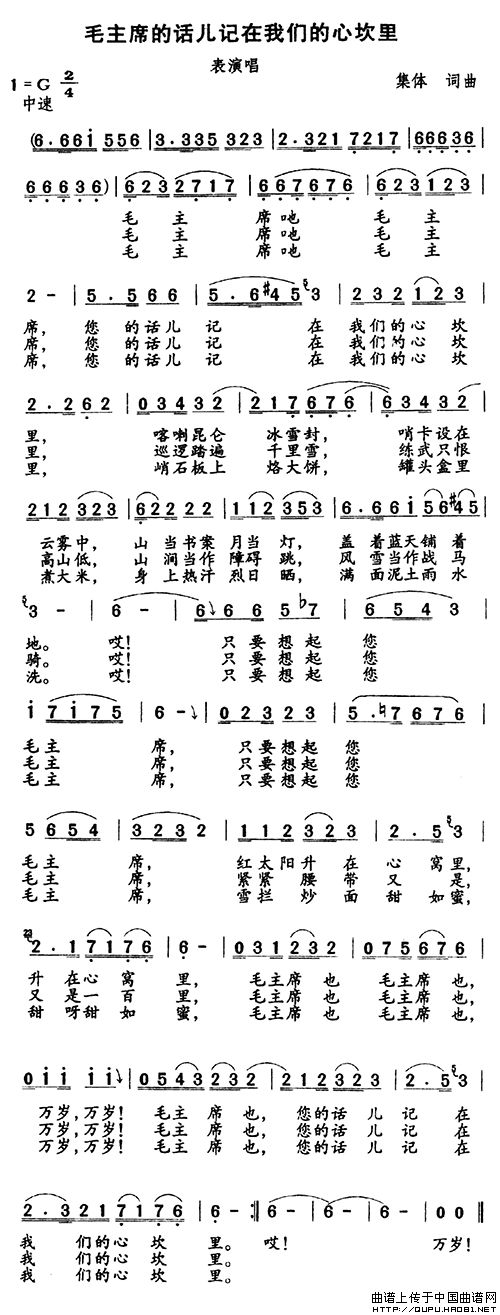 毛主席的话儿记在我们的心坎里
表演唱
1=G 2/4
中速
集体 词曲
(6.661 556 | 3.335 323 | 2.321 7217 | 66636 |
66636) | 6232717 | 667676 | 623123 |
毛 主 席吔 毛 主
毛 主 席吔 毛 主
毛 主 席吔 毛 主
2 - | 5.566 | 5.6#45 3 | 232123 |
席，您 的话儿 记 在 我们的心 坎
席，您 的话儿 记 在 我们的心 坎
席，您 的话儿 记 在 我们的心 坎
2.262 | 03432 | 217676 | 63432 |
里， 喀喇昆仑 冰雪封， 哨卡设在
里， 巡逻踏遍 千里雪， 练武只恨
里， 峭石板上 烙大饼， 罐头盒里
212323 | 2622 | 112353 | 6.66156#45 |
云雾中， 山 当书案 月当 灯， 盖 着蓝天铺 着
高山低， 山 涧当作 障碍 跳， 风 雪当作战 马
煮大米， 身 上热汗 烈日 晒， 满 面泥土雨 水
3 - | 6 - | 6 66 5b7 | 6543 |
地。 哎！ 只要想起 您
骑。 哎！ 只要想起 您
洗。 哎！ 只要想起 您
17175 | 6 - | 02323 | 5.7676 |
毛主 席， 只要想起 您
毛主 席， 只要想起 您
毛主 席， 只要想起 您
5654 | 3232 | 112323 | 2.53 |
毛主 席， 红太阳升 在 心 窝里，
毛主 席， 紧紧腰 带 又 是，
毛主 席， 雪拦炒 面 甜 如蜜，
2.17176 | 6- | 031232 | 075676 |
升 在心 窝 里， 毛主席 也 毛主席 也，
又 是一 百 里， 毛主席 也 毛主席 也，
甜 呀甜 如 蜜， 毛主席 也 毛主席 也，
011 11 | 0543232 | 212323 | 2.53 |
万岁，万岁！ 毛主 席 也， 您的话 儿 记 在
万岁，万岁！ 毛主 席 也， 您的话 儿 记 在
万岁，万岁！ 毛主 席 也， 您的话 儿 记 在
2.3217176 | 6- :‖ 6- | 6- | 00 ‖
我 们的心 坎 里。 哎！ 万岁！
我 们的心 坎 里。
我 们的心 坎 里。
曲谱上传于中国曲谱网
HTTP://QUPU.HAO81.NET